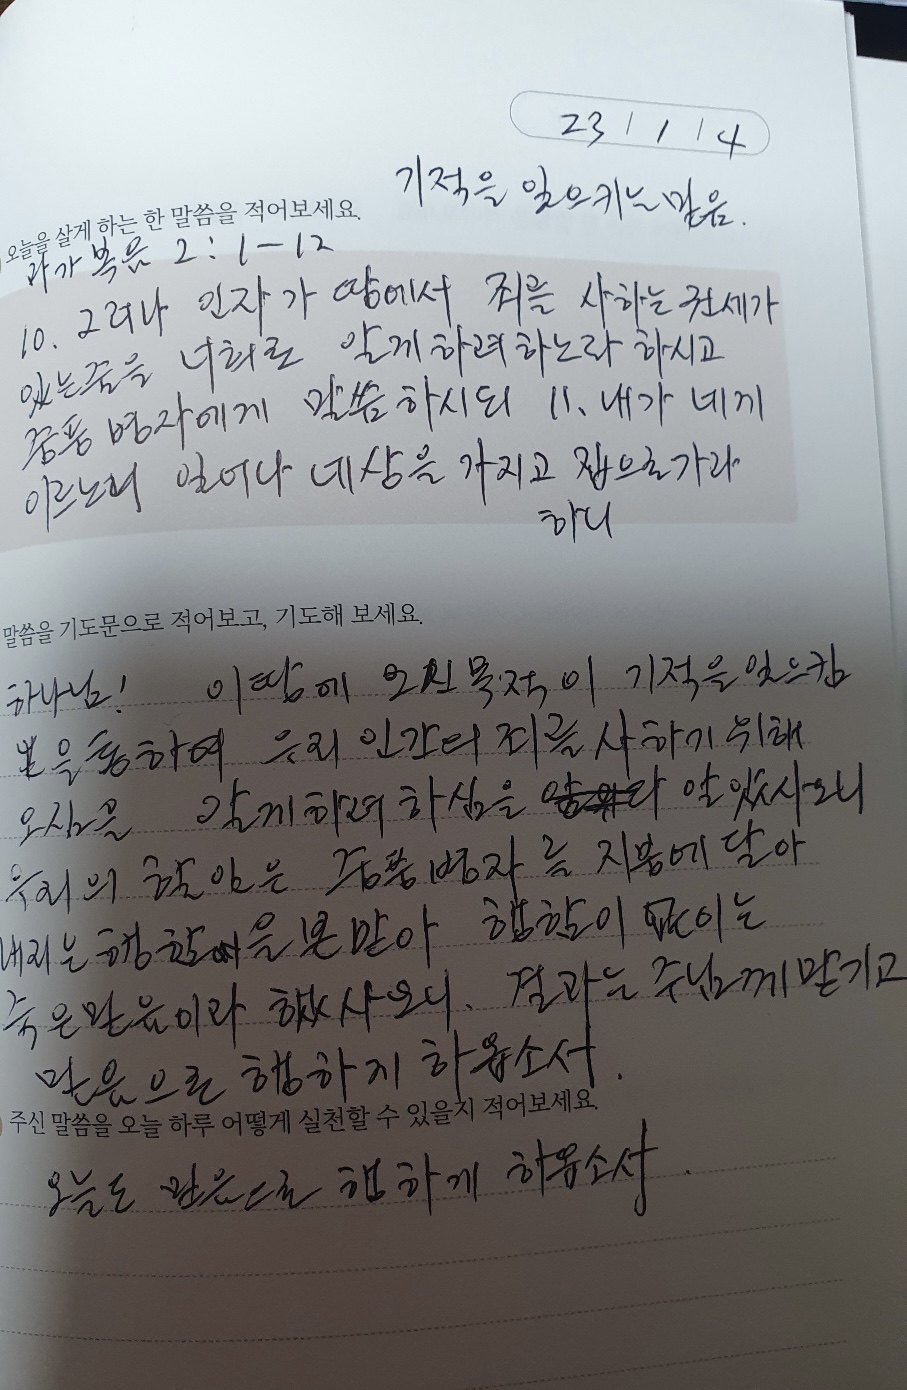 23 / 1 / 4
기적을 일으키는 믿음.
오늘을 살게 하는 한 말씀을 적어보세요.
마가복음 2:1-12
10. 그러나 인자가 땅에서 죄를 사하는 권세가
있는줄을 너희로 알게하려하노라 하시고
중풍병자에게 말씀하시되 11. 내가 네게
이르노니 일어나 네상을 가지고 집으로가라
하니
말씀을 기도문으로 적어보고, 기도해 보세요.
하나님! 이땅에 오신목적이 기적을일으킴
을통하여 우리 인간의 죄를 사하기위해
오심을 알게하려 하심을 알았사오니
우리의 할일은 중풍병자를 지붕에 달아
내리는 행함을 본받아 행함이 없이는
죽은믿음이라 했사오니. 결과는 주님께 맡기고
믿음으로 행하게 하옵소서.
주신 말씀을 오늘 하루 어떻게 실천할 수 있을지 적어보세요.
오늘도 믿음으로 행하게 하옵소서.